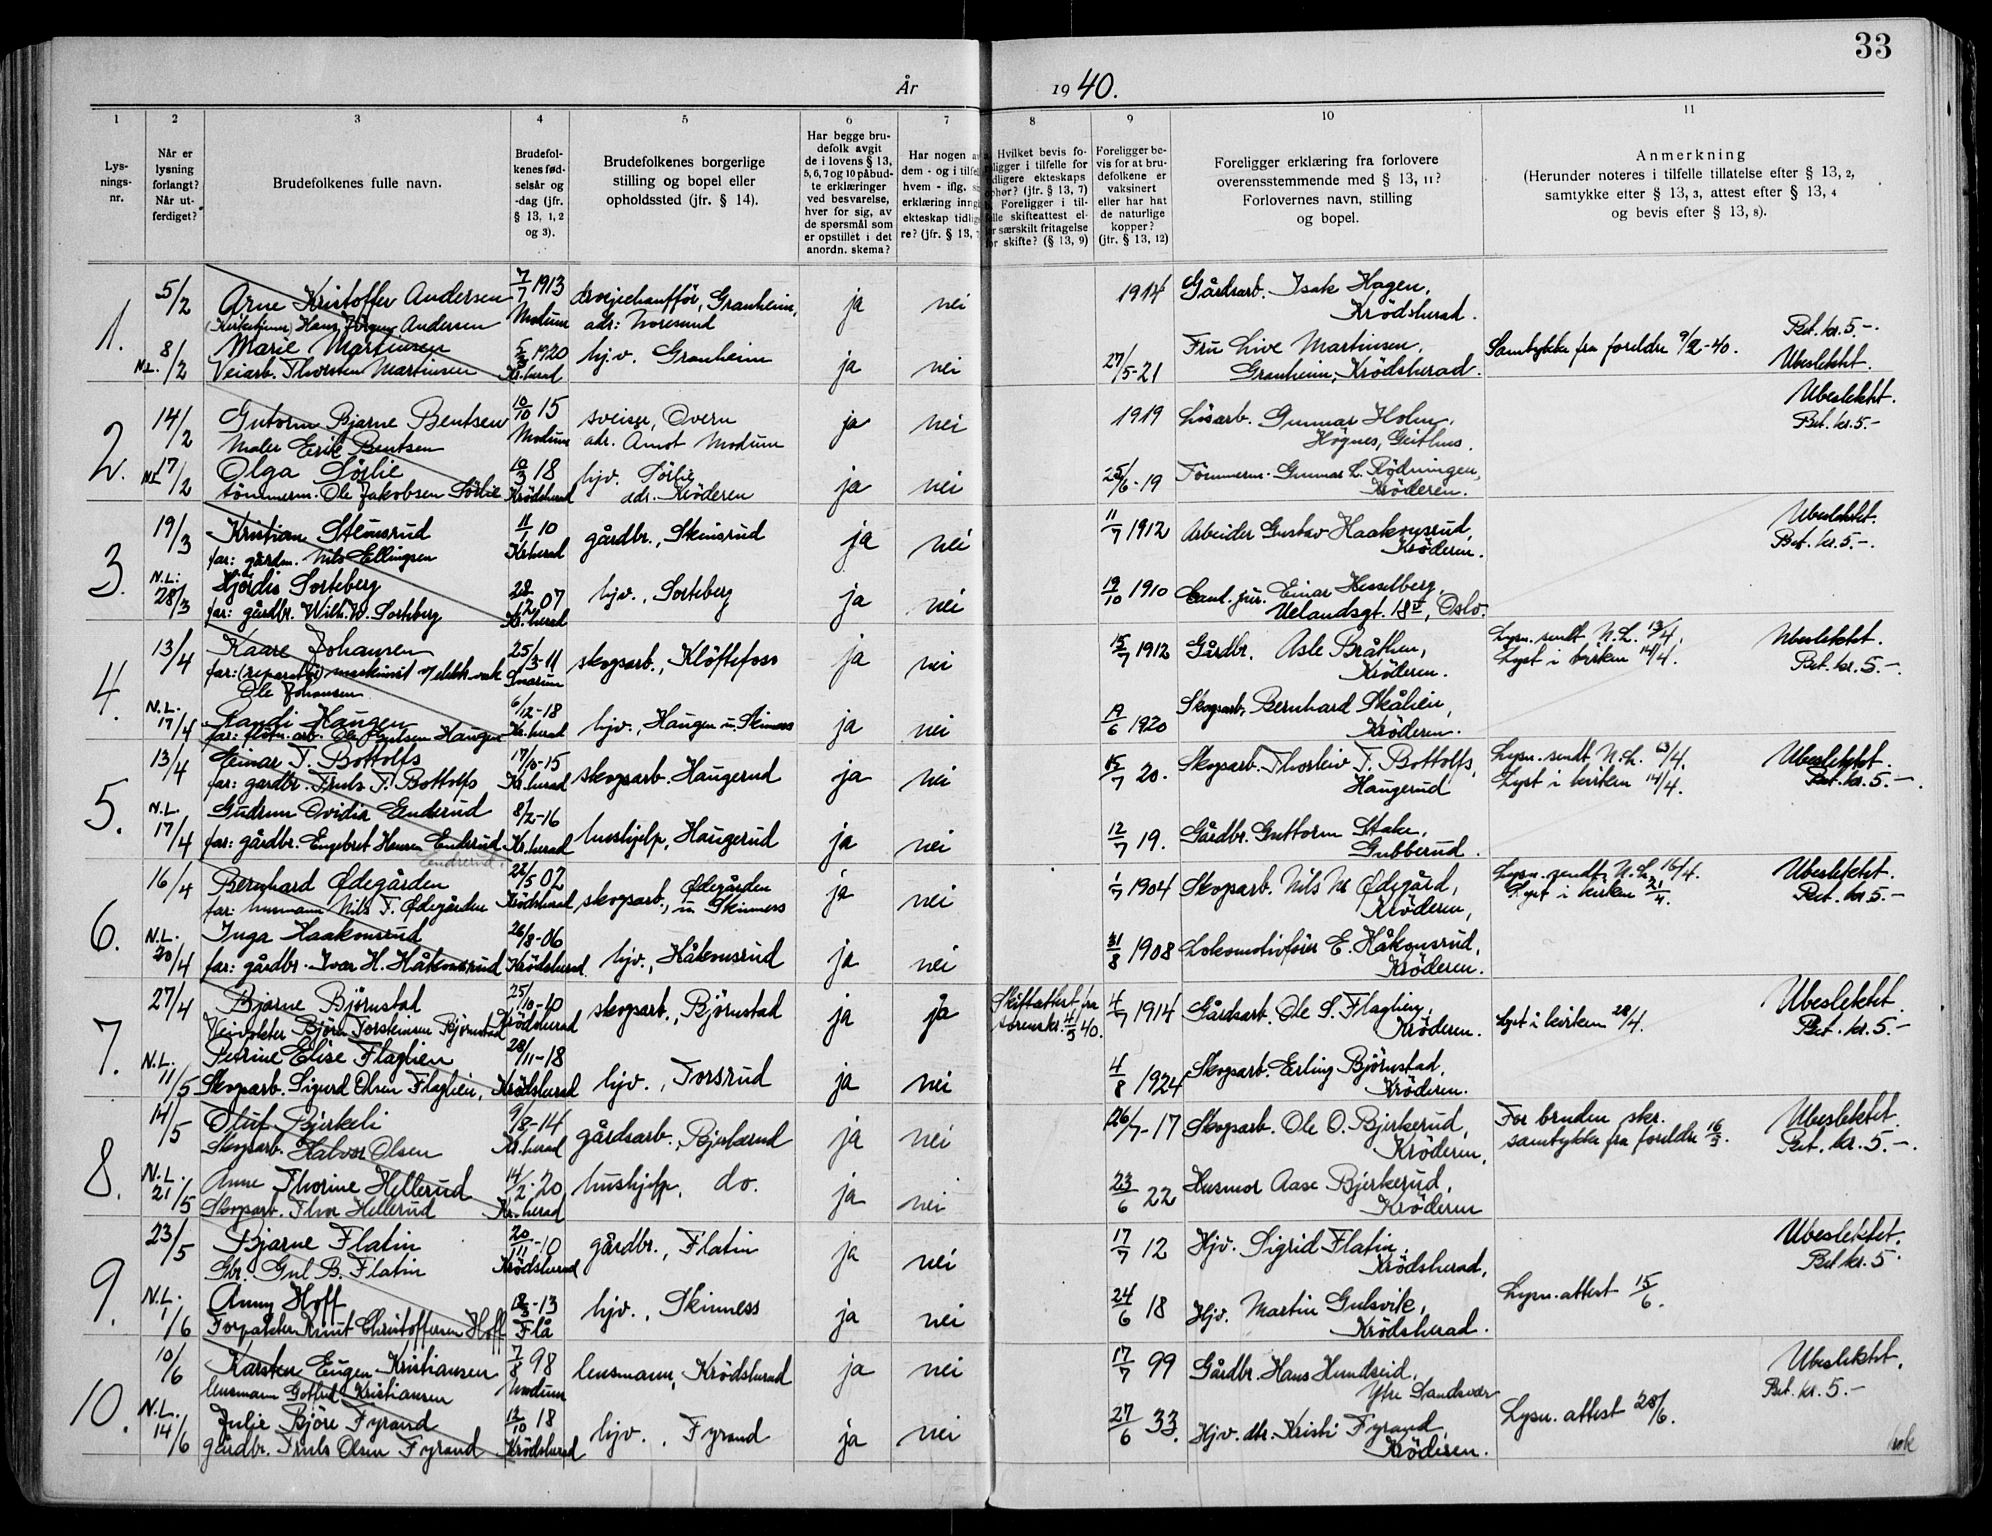 33
År 1940.
1 2 3 4 5 6 7 8 9 10 11
Lys-
nings-
nr.
Når er
lysning
forlangt?
Når ut-
ferdiget?
Brudefolkenes fulle navn.
Brudefol-
kenes fød-
selsår og
-dag (jfr.
§ 13, 1, 2
og 3).
Brudefolkenes borgerlige
stilling og bopel eller
opholdssted (jfr. § 14).
Har begge bru-
defolk avgit
de i lovens § 13,
5, 6, 7 og 10 påbud-
te erklæringer
ved besvarelse,
hver for sig, av
de spørsmål som
er opstillet i det
anordn. skema?
Har nogen a
dem - og i tilfel
hvem - iflg. s
erklæring inng
ekteskap tidlig
re? (jfr. § 13, 7
Hvilket bevis fo-
religger i tilfelle for
tidligere ekteskaps
ophør? (jfr. § 13, 7)
Foreligger i til-
felle skifteattest el-
r særskilt fritagelse
for skifte? (§ 13, 9)
Foreligger be-
vis for at bru-
defolkene er
vaksinert
eller har hat
de naturlige
kopper?
(jfr. § 13, 12)
Foreligger erklæring fra forlovere
overensstemmende med § 13, 11?
Forlovernes navn, stilling
og bopel.
Anmerkning
(Herunder noteres i tilfelle tillatelse efter § 13, 2,
samtykke efter § 13, 3, attest efter § 13, 4
og bevis efter § 13, 8).
1. 5/2 Arne Kristoffer Andersen 7/7 1913 Granheim, ja nei 1914 Gårdsarb. Isak Hagen,
Hans Jørgen Andersen Modum adr: Noresund Krödsherad.
Bet. kr. 5-.
Marie Martinsen 1920 hjv. Granheim Fru Live Martinsen, Samtykke fra foreldre 9/2-40. Ubeslektet.
N.L. 8/2 Veiarb. Thorsten Martinsen Kr.herad ja nei 27/5-21 Granheim, Krödsherad.
2. 14/2 Gutorm Bjarne Bentsen 10/10 15 sveiser, Overn ja nei 1919 Lösarb. Gunnar Holm, Ubeslektet.
Maler Erik Bentsen Modum adr. Åmot Modum Högnes, Geithus. Bet. kr. 5.-
N.L. 17/2 Olga Sørlie 10/3 18 hjv. Sørlie 25/6-19 Tömmerm. Gunnar L. Rödningen,
tömmerm. Ole Jakobsen Sørlie Krödsherad adr. Kröderen ja nei Kröderen.
3. 19/3 Kristian Stensrud 11/1 10 gårdbr., Skinsrud ja nei 11/7 1912 Arbeider Gustav Haakonsrud, Ubeslektet.
far: gårdm. Nils Ellingsen Kr.herad Kröderen. Bet. kr. 5.-.
N.L: 28/3 Hjördis Sorteberg 28/2 07 hjv., Sorteberg ja nei 19/10 1910 Cand. jur. Einar Hesselberg,
far: gårdbr. Wilh. W. Sorteberg Kr.herad Uelandsgt. 18 IV, Oslo.
4. 13/4 Kaare Johansen 25/3-11 skogsarb., Klöftefoss ja nei 15/7 1912 Gårdbr. Asle Bråthen, Lysn. sendt N.L. 13/4. Ubeslektet.
far: (reparatör) maskinist v/ elektr. verk Snarum Kröderen. Lyst i kirken 14/4. Bet. kr. 5.-
Ole Johansen
N.L. 17/4 Randi Haugen 6/12-18 hjv., Haugen u. Skinnes ja nei 19/6 1920 Skogsarb. Bernhard Skålien,
far: flötn. arb. Ole Haugen Kr.herad Kröderen.
5. 13/4 Heimar T. Bottolfs 17/10-15 skogsarb. Haugerud ja nei 15/7 20. Skogsarb. Thorleiv T. Bottolfs, Lysn. sendt N.L. 13/4. Ubeslektet.
far: gårdbr. Truls T. Bottolfs Kr.herad Haugerud Lyst i kirken 14/4. Bet. kr. 5.-.
N.L. 17/4 Gudrun Ovidia Enderud 8/2-16 hushjelp, Haugerud ja nei 12/7 19. Gårdbr. Guttorm Stake,
far: gårdbr. Engebret Hansen Enderud Kr.herad Gubberud.
Endrerud.
6. 16/4 Bernhard Ødegården 22/5 02 skogsarb., Ødegården ja nei 1/7 1904 Skogsarb. Nils N. Ødegård, Lysn. sendt N.L. 16/4. Ubeslektet.
far: husmann Nils T. Ødegården Krödsherad u. Skinness Kröderen, Lyst i kirken 21/4. Bet. kr. 5.-
N.L. 20/4 Inga Haakonsrud 26/8-06 hjv., Håkonsrud ja nei 31/8 1908 Lokomotivfører E. Håkonsrud,
far: gårdbr. Ivar H. Håkonsrud Krödsherad. Kröderen.
7. 27/4 Bjarne Björnstad 25/10-10 skogsarb., Björnstad ja ja Skifteattest fra 4/7 1914 Gårdsarb. Ole S. Flaglien, Lyst i kirken 28/4. Ubeslektet
Veivokter Björn Torstensen Björnstad Krödsherad sorenskr. 4/5 40. Kröderen. Bet. kr. 5.-
N.L. 11/5 Petrine Elise Flaglien 28/11-18 hjv., Torsrud ja nei 4/8 1924 Skogsarb. Erling Björnstad,
Skogsarb. Sigurd Olsen Flaglien, Krödsherad Kröderen.
8. 14/5 Oluf Bjerkeli 9/8-14 gårdsarb., Bjerkerud ja nei 26/7-17 Skogsarb. Ole O. Bjerkerud, For bruden skr. Ubeslektet
Skogsarb. Halvor Olsen Kr.herad Kröderen, samtykke fra foreldre 16/5. Bet. kr. 5.-.
N.L. 21/5 Anne Thorine Hellerud 14/2-20 hushjelp, do. ja nei 23/6 22 Husmor Aase Bjerkerud,
Skogsarb. Thor Hellerud Kr.herad Kröderen
9. 23/5 Bjarne Flatin 20/11-10 gårdbr., Flatin ja nei 17/7 12 Hjv. Sigrid Flatin, Ubeslektet.
Gbr. Gul B. Flatin Krödsherad Krödsherad, Bet kr. 5.-
N.L. 1/6 Anny Hoff 18/3-13 hjv., Skinness ja nei 24/6 18 Hjv. Martin Gulsvik, Lysn. attest 15/6.
Forpakter Knut Christoffersen Hoff Flå Krödsherad.
10. 10/6 Karsten Eugen Kristiansen 7/8 98 lensmann, Krödsherad ja nei 17/7 99 Gårdbr. Hans Hundseid, Ubeslektet.
lensmann Gotfred Kristiansen Modum Ytre Sandsvær Bet. kr. 5.-
N.L. 14/6 Julie Björe Fyrand 12/10 18 hjv., Fyrand ja nei 27/6 33. Hjv. dtr. Kristi Fyrand, Lysn. attest 28/6.
gårdbr. Truls Olsen Fyrand Krödsherad Kröderen.